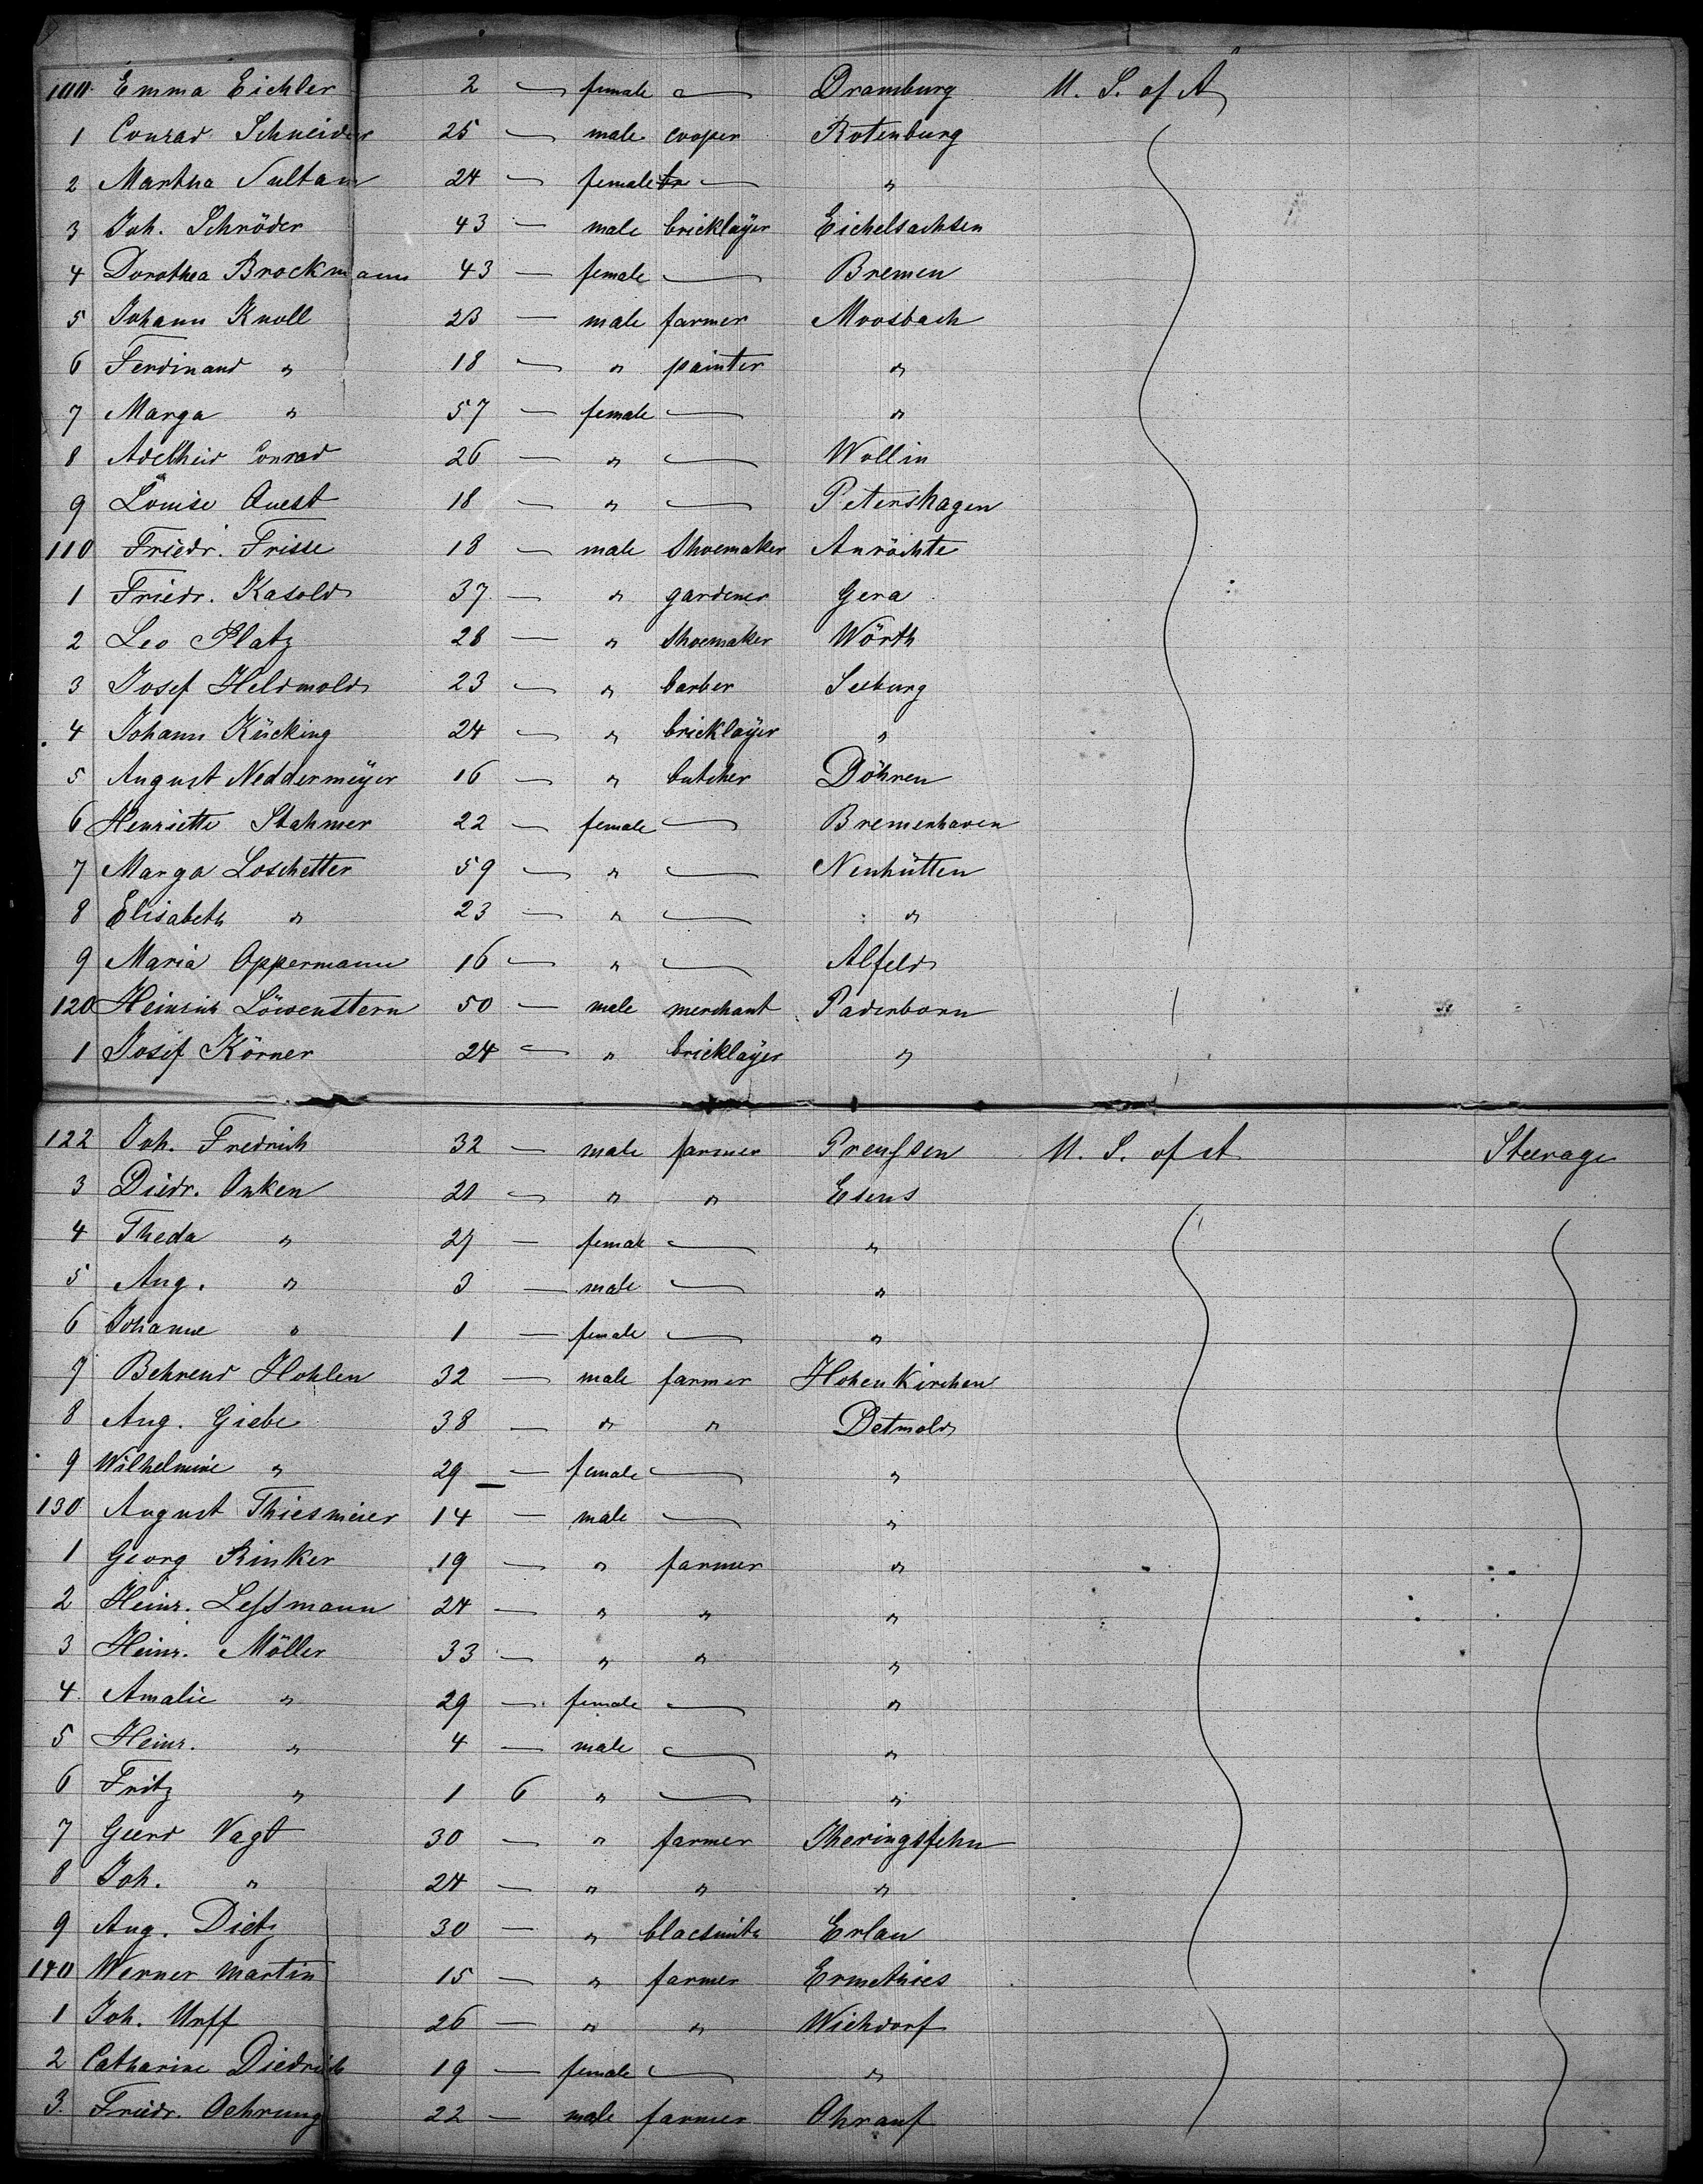 100. Emma Eichler 2 — female — Dramburg U. S. of A
1 Conrad Schneider 25 — male cooper Rotenburg
2 Martha Sultan 24 — female — "
3 Joh. Schröder 43 — male bricklayer Eichelsachsen
4 Dorothea Brockmann 43 — female — Bremen
5 Johann Knoll 23 — male farmer Moosbach
6 Ferdinand " 18 — " painter "
7 Marga " 57 — female — "
8 Adelheid Conrad 26 — " — Wollin
9 Louise Quest 18 — " — Petershagen
110 Friedr. Frisse 18 — male Shoemaker Anröchte
1 Friedr. Kasold 37 — " gardener Gera
2 Leo Platz 28 — " Shoemaker Wörth
3 Josef Heldmold 23 — " barber Seeburg
4 Johann Kücking 24 — " bricklayer "
5 August Neddermeyer 16 — " butcher Döhren
6 Henriette Stahmer 22 — female — Bremenhaven
7 Marga Loschetter 59 — " — Neuhütten
8 Elisabeth " 23 — " — "
9 Maria Oppermann 16 — " — Alfeld
120 Heinrich Löwenstern 50 — male merchant Paderborn
1 Josef Körner 24 — " bricklayer "
122 Joh. Fredrich 32 — male farmer Preußen U. S. of A Steerage
3 Diedr. Onken 21 — " " Esens
4 Theda " 27 — female — "
5 Aug. " 3 — male — "
6 Johanne " 1 — female — "
7 Behrend Hohlen 32 — male farmer Hohenkirchen
8 Aug. Giebe 38 — " " Detmold
9 Wilhelmine " 29 — female — "
130 August Thiesmeier 14 — male — "
1 Georg Rinker 19 — " farmer "
2 Heinr. Leßmann 24 — " " "
3 Heinr. Möller 33 — " " "
4. Amalie " 29 — female — "
5 Heinr. " 4 — male — "
6 Fritz " 1 6 " — "
7 Geerd Vagt 30 — " farmer Iheringsfehn
8 Joh. " 24 — " " "
9 Aug. Dietz 30 — " blacsmith Erlau
140 Werner Martin 15 — " farmer Ermethies
1 Joh. Urff 26 — " " Wichdorf
2 Catharine Diedrich 19 — female — "
3. Friedr. Oehrung 22 — male farmer